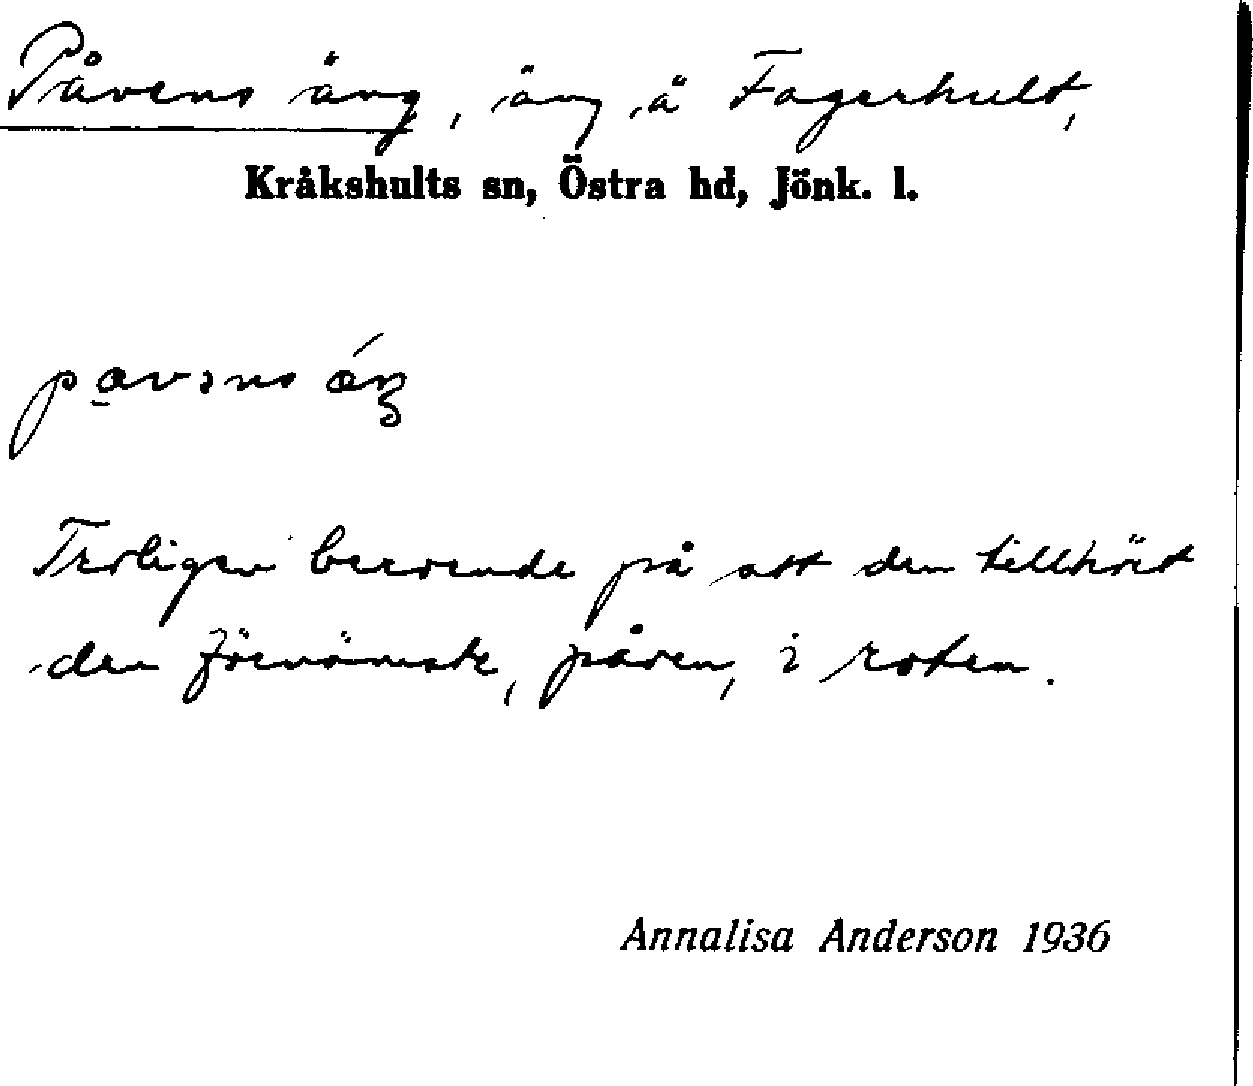 Påvens äng, äng å Fagerhult,
Kråkshults sn, Östra hd, Jönk. l.
pavəns ǽŋ
Troligen beroende på att den tillhört
den förnämste, påven, i roten.
Annalisa Anderson 1936